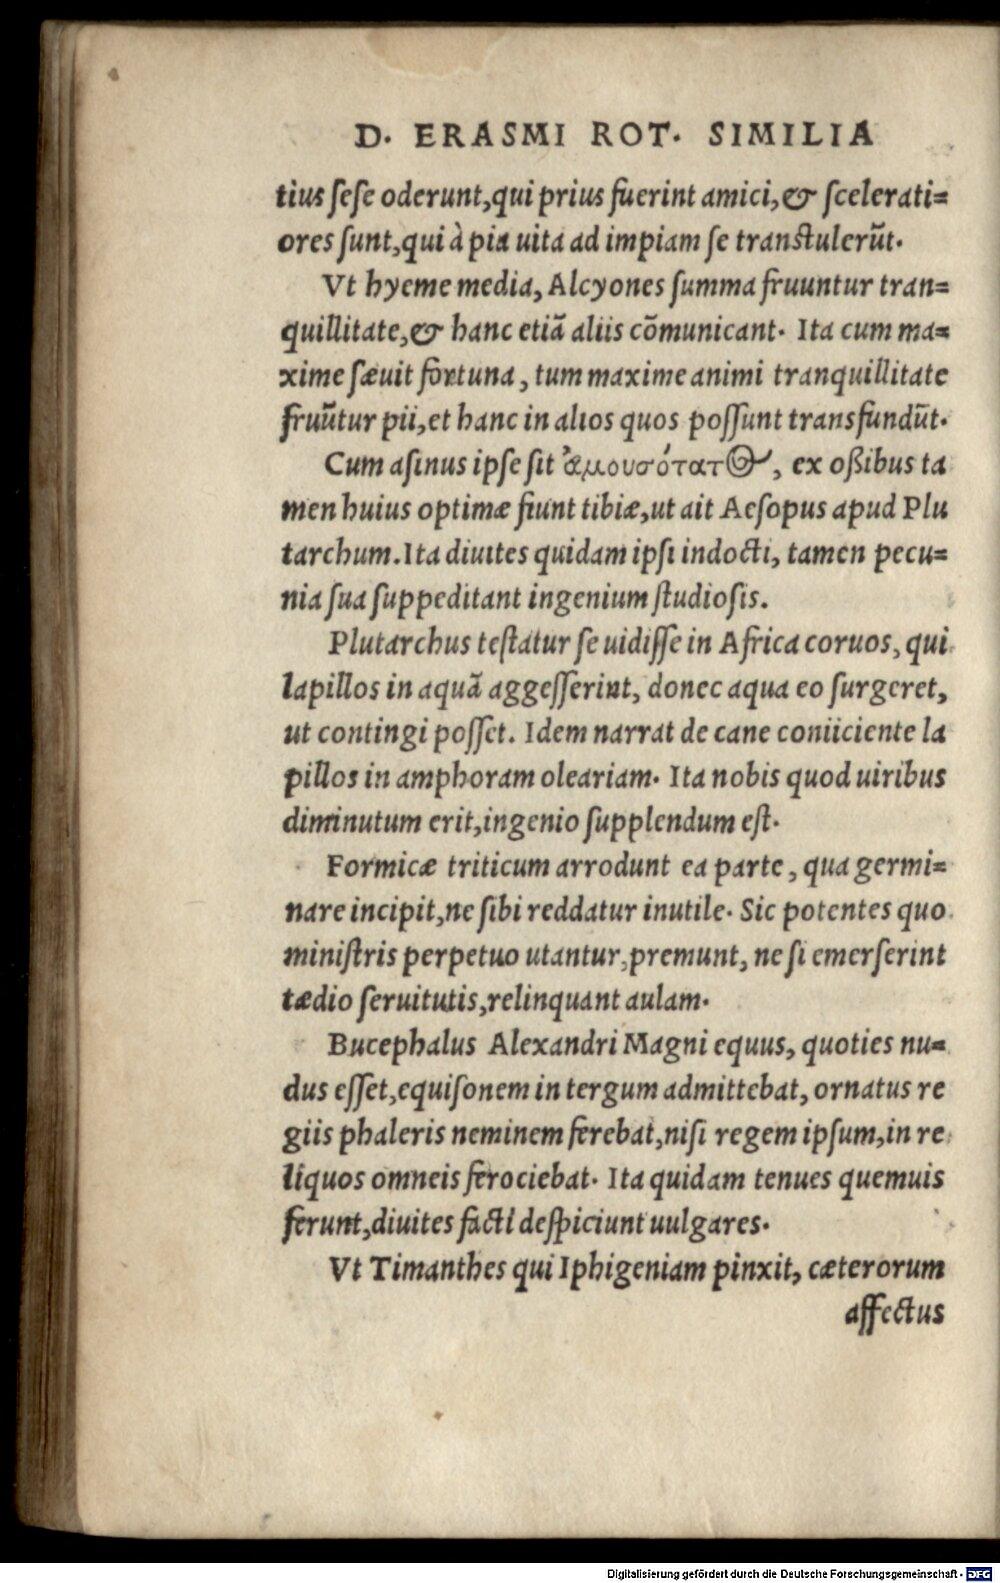 D. ERASMI ROT. SIMILIA
tius sese oderunt, qui prius fuerint amici, & scelerati=
ores sunt, qui à pia uita ad impiam se transtulerūt.
Vt hyeme media, Alcyones summa fruuntur tran=
quillitate, & hanc etiā aliis cōmunicant. Ita cum ma=
xime sæuit fortuna, tum maxime animi tranquillitate
fruūtur pii, et hanc in alios quos possunt transfundūt.
Cum asinus ipse sit ἀμουσότατος, ex oßibus ta
men huius optimæ fiunt tibiæ, ut ait Aesopus apud Plu
tarchum. Ita diuites quidam ipsi indocti, tamen pecu=
nia sua suppeditant ingenium studiosis.
Plutarchus testatur se uidisse in Africa coruos, qui
lapillos in aquā aggesserint, donec aqua eo surgeret,
ut contingi posset. Idem narrat de cane coniiciente la
pillos in amphoram oleariam. Ita nobis quod uiribus
diminutum erit, ingenio supplendum est.
Formicæ triticum arrodunt ea parte, qua germi=
nare incipit, ne sibi reddatur inutile. Sic potentes quo
ministris perpetuo utantur, premunt, ne si emerserint
tædio seruitutis, relinquant aulam.
Bucephalus Alexandri Magni equus, quoties nu=
dus esset, equisonem in tergum admittebat, ornatus re
giis phaleris neminem ferebat, nisi regem ipsum, in re
liquos omneis ferociebat. Ita quidam tenues quemuis
ferunt, diuites facti despiciunt uulgares.
Vt Timanthes qui Iphigeniam pinxit, cæterorum
affectus
Digitalisierung gefördert durch die Deutsche Forschungsgemeinschaft - DFG